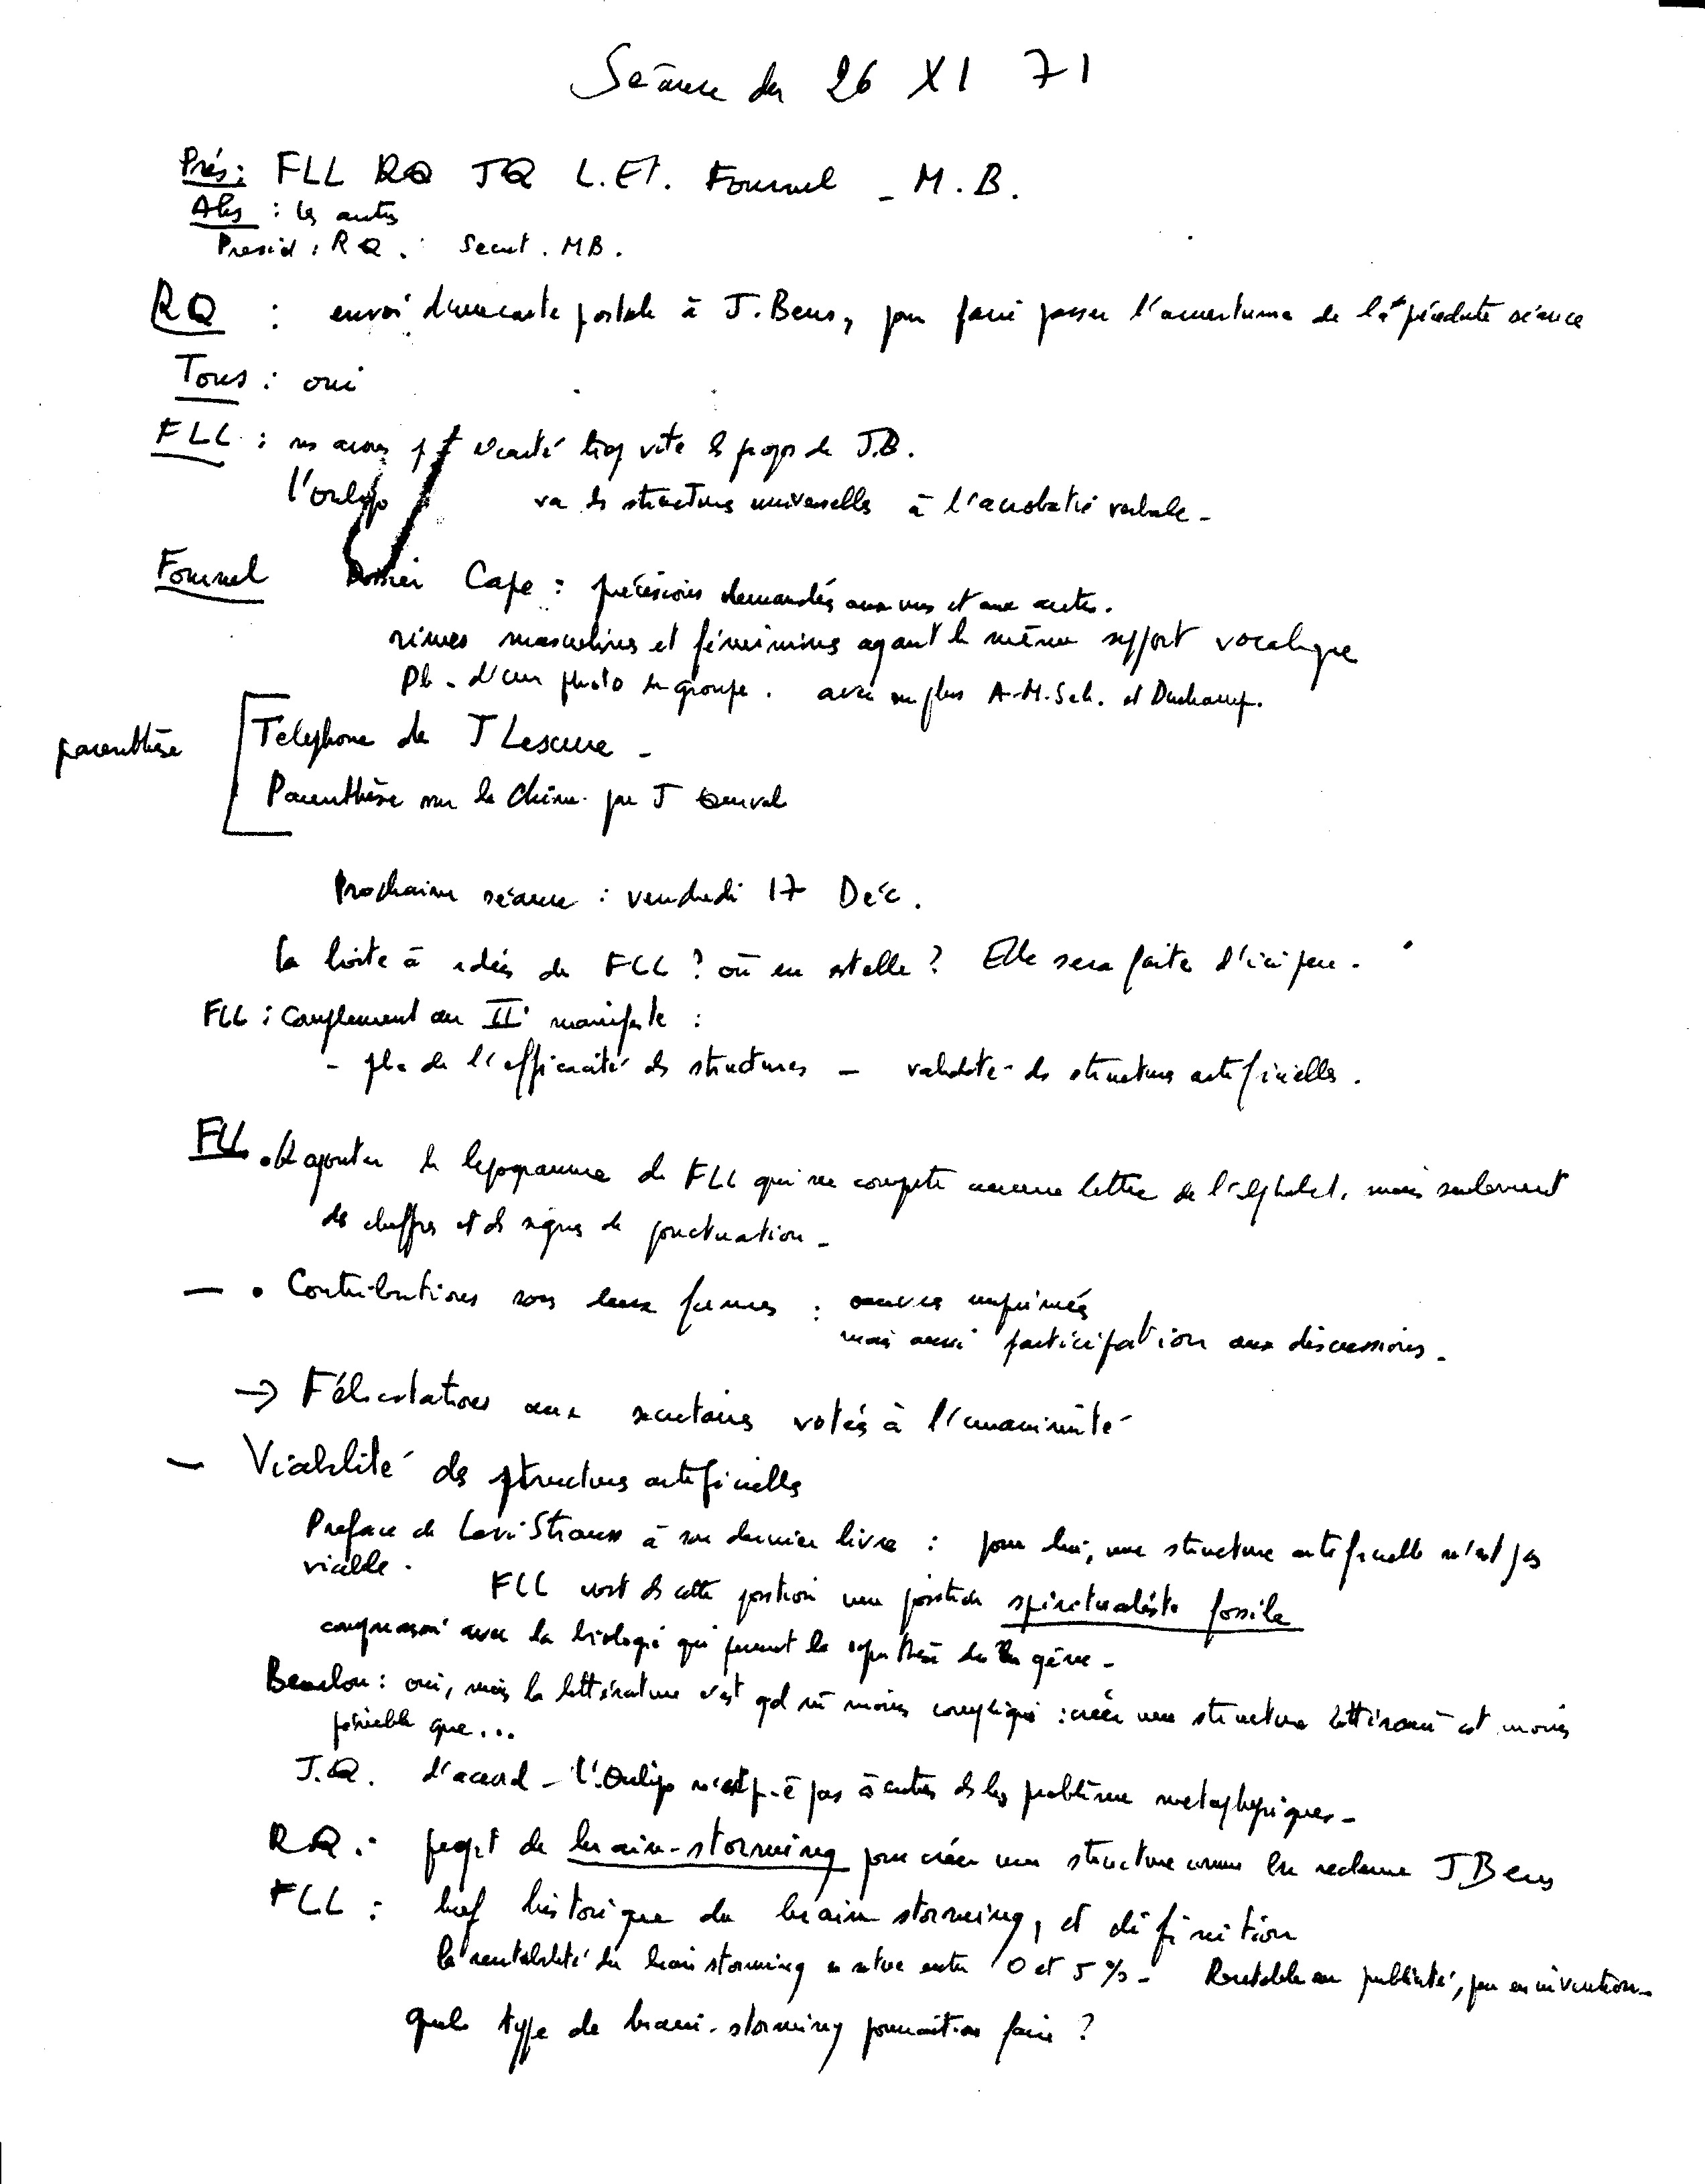 Séance du 26 XI 71
Prés: FLL RQ JQ L.Et. Fournel - M.B.
Abs : les autres
Presid : RQ. : Secret. MB.
RQ : envoi d'une carte postale à J. Bens, pour faire passer l'amertume de la précédente séance
Tous : oui
FLL : ns avons p ê écarté trop vite les propos de J.B.
l'Oulipo va des structures universelles à l'acrobatie verbale -
Fournel Dossier Cape : précisions demandées aux uns et aux autres.
rimes masculines et féminines ayant le même support vocalique
Pb. d'une photo du groupe. avec en plus A-M.Sch. et Duchamp.
parenthèse
Telephone de J Lescure -
Parenthèse sur la Chine par J Queval
Prochaine séance : vendredi 17 Déc.
La boite à idées de FLL ? où en est elle ? Elle sera faite d'ici peu.
FLL : Complement au II manifeste :
- pb. de l'efficacité des structures - validité des structures artificielles.
FLL . ajouter le lipogramme de FLL qui ne compte aucune lettre de l'alphabet, mais seulement
des chiffres et des signes de ponctuation -
- . Contributions sous deux formes : oeuvres imprimées
mais aussi participation aux discussions.
→ Félicitations aux secrétaires votées à l'unanimité
- Viabilité des structures artificielles
Preface de Levi Strauss à son dernier livre : pour lui, une structure artificielle n'est pas
viable.
FLL voit ds cette position une position spiritualiste fossile
comparaison avec la biologie qui permet la synthèse du gène -
Benabou : oui, mais la littérature c'est qd même moins compliqué : créer une structure littéraire est moins
pénible que...
J.Q. d'accord - l'Oulipo n'est p-ê pas à entrer ds les problèmes métaphysiques -
RQ : projet de brain-storming pour créer une structure comme la reclame J Bens
FLL : bref historique du brain storming, et définition
la rentabilité du brain storming se situe entre 0 et 5 % - Rentable en publicité, peu en invention -
quel type de brain-storming pourrait on faire ?